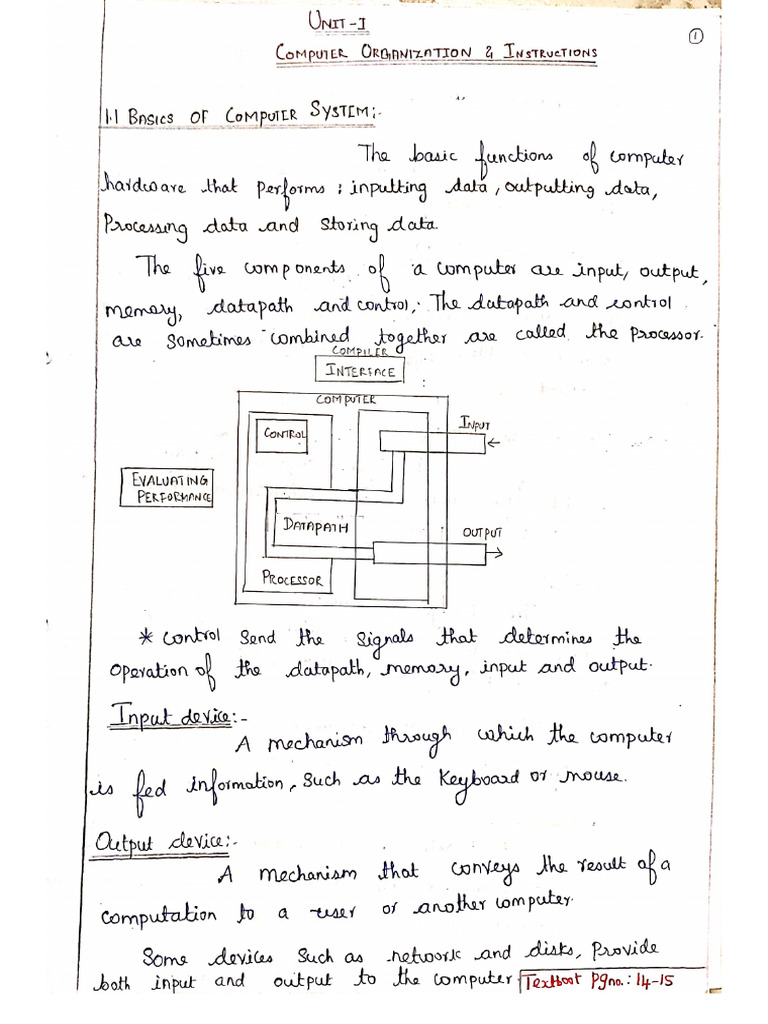 UNIT-I
1
COMPUTER ORGANIZATION & INSTRUCTIONS
1.1 BASICS OF COMPUTER SYSTEM:-
The basic functions of computer
hardware that performs : inputting data, outputting data,
Processing data and storing data.
The five components of a computer are input, output,
memory, datapath and control,. The datapath and control
are sometimes combined together are called the processor.
COMPILER
INTERFACE
COMPUTER
CONTROL
INPUT
EVALUATING
PERFORMANCE
DATAPATH
OUTPUT
PROCESSOR
* Control Send the signals that determines the
operation of the datapath, memory, input and output.
Input device:-
A mechanism through which the computer
is fed information, such as the Keyboard or mouse.
Output device:-
A mechanism that conveys the result of a
computation to a user or another computer.
Some devices such as network and disks, Provide
both input and output to the computer Textboot Pgno.: 14-15